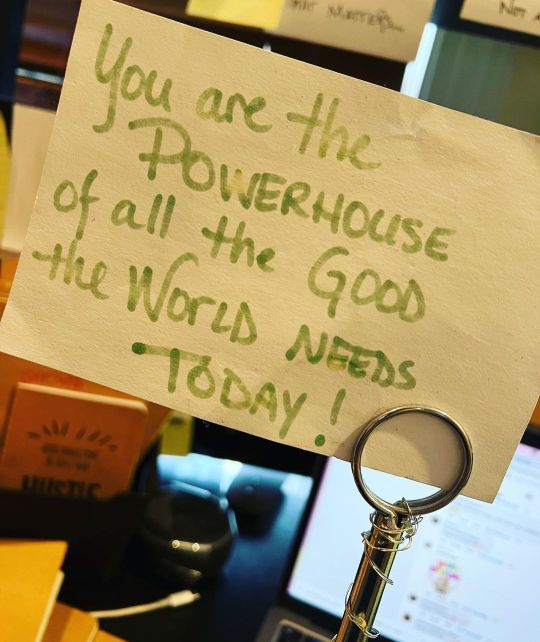 You are the
POWERHOUSE
of all the GOOD
the WORLD NEEDS
TODAY!
HUSTLE